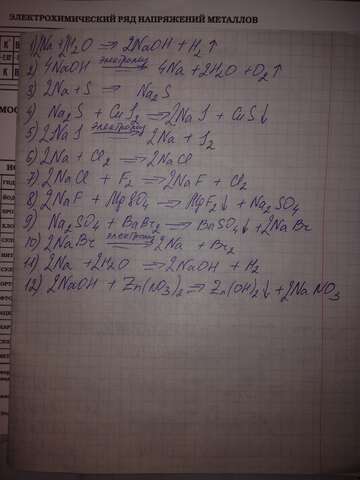 ЭЛЕКТРОХИМИЧЕСКИЙ РЯД НАПРЯЖЕНИЙ МЕТАЛЛОВ
1) 2Na + 2H2O => 2NaOH + H2↑
2) 4NaOH электролиз => 4Na + 2H2O + O2↑
3) 2Na + S => Na2S
4) Na2S + CuI2 => 2NaI + CuS↓
5) 2NaI электролиз => 2Na + I2
6) 2Na + Cl2 => 2NaCl
7) 2NaCl + F2 => 2NaF + Cl2
8) 2NaF + MgSO4 => MgF2↓ + Na2SO4
9) Na2SO4 + BaBr2 => BaSO4↓ + 2NaBr
10) 2NaBr электролиз => 2Na + Br2
11) 2Na + 2H2O => 2NaOH + H2
12) 2NaOH + Zn(NO3)2 => Zn(OH)2↓ + 2NaNO3